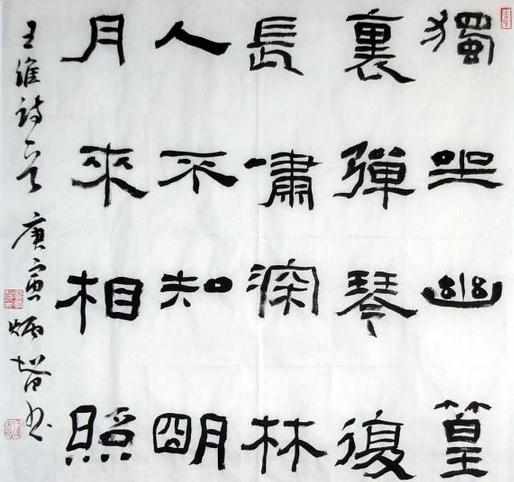 獨坐幽篁
裏彈琴復
長嘯深林
人不知明
月來相照
王維詩一首 庚寅 炳书